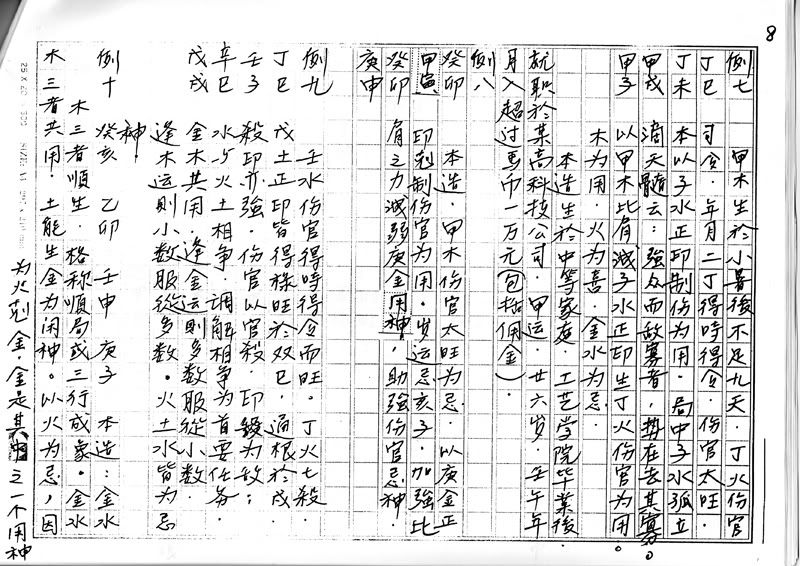 8
例七　甲木生於小暑後不足九天．丁火伤官
丁巳　司令．年月二丁得時得令．伤官太旺．
丁未　本以子水正印制伤为用．局中子水孤立
甲戌　滴天髓云：強众而敌寡者，势在去其寡。
甲子　以甲木比肩減子水正印生丁火伤官为用。
木为用．火为喜．金水为忌．
本造生於中等家庭．工艺学院毕業後．
就职於某高科技公司．甲运．廿六岁．壬午年
月入超过馬币一万元（包括佣金）．
例八
癸卯　本造．甲木伤官太旺为忌．以庚金正
甲寅　印剋制伤官为用．岁运忌亥子．加強比
癸卯　肩之力減弱庚金用神．助強伤官忌神．
庚申
例九　壬水伤官得時得令而旺．丁火七殺．
丁巳　戊土正印皆得祿旺於双巳．通根於戌
壬子　殺印亦強．伤官以官殺．印缓为敌；
辛巳　水与火土相争．调解相争为首要任务．
戊戌　金木共用．逢金运则多数服從小数．
逢木运则小数服從多数．火土水皆为忌
神
例十　癸亥　乙卯　壬申　庚子　本造：金水
木三者順生．格称順局或三行成象．金水
木三者共用．土能生金为用神。以火为忌，因
为火剋金．金是其中之一个用神
25 X 20 500